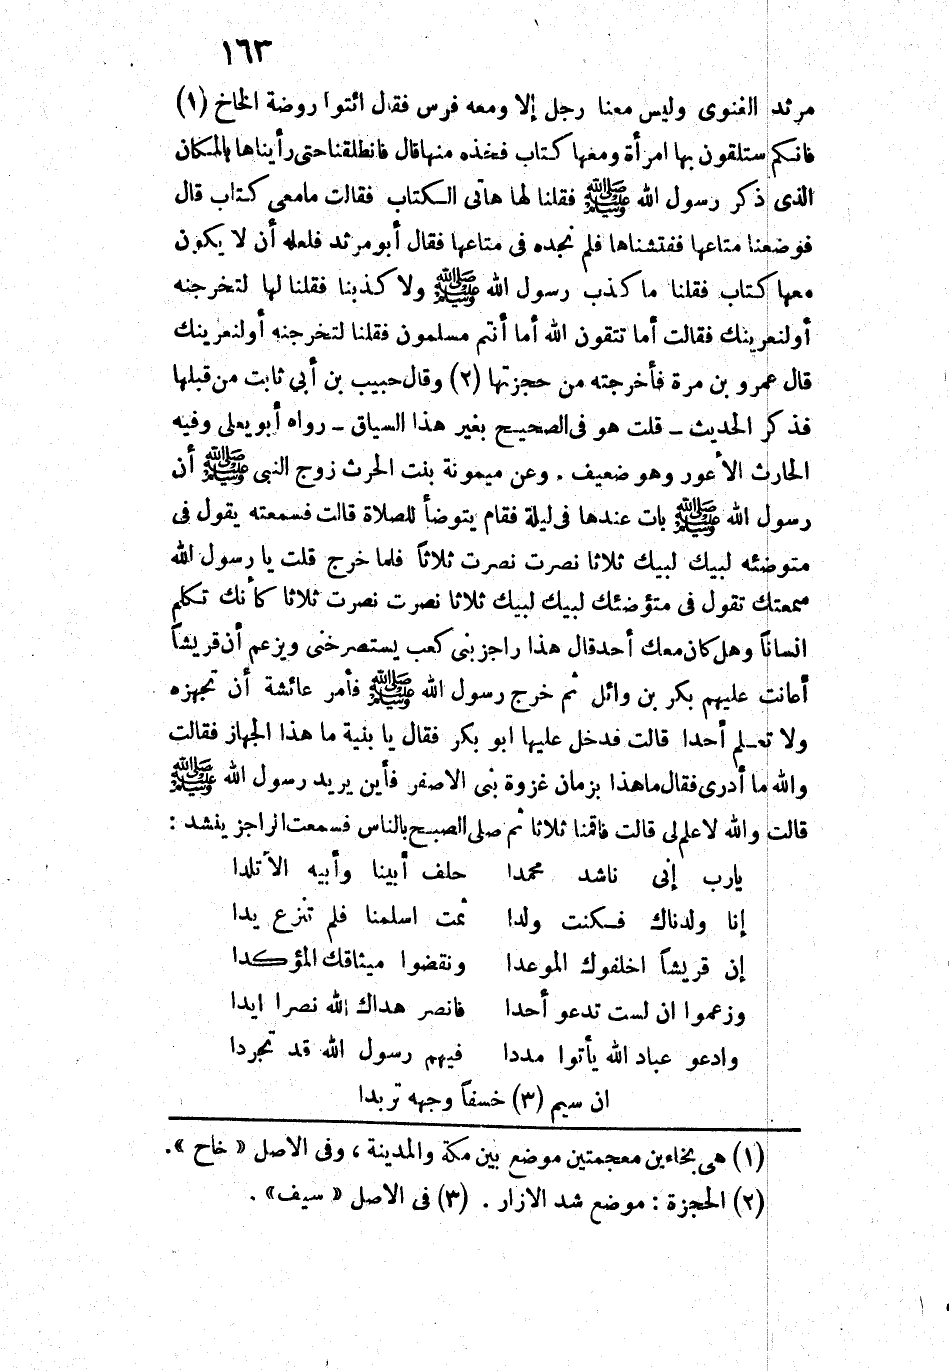 ١٦٣
مرثد الغنوى وليس معنا رجل إلا ومعه فرس فقال ائتوا روضة الخاخ (١)
فانكم ستلقون بها امرأة ومعها كتاب فخذه منها قال فانطلقنا حتى رأيناها بالمكان
الذى ذكر رسول الله ﷺ فقلنا لها هاتى الكتاب فقالت مامعى كتاب قال
فوضعنا متاعها ففتشناها فلم نجده فى متاعها فقال أبو مرثد فلعله أن لا يكون
معها كتاب فقلنا ما كذب رسول الله ﷺ ولا كذبنا فقلنا لها لتخرجنه
أولنعرينك فقالت أما تتقون الله أما أنتم مسلمون فقلنا لتخرجنه أولنعرينك
قال عمرو بن مرة فأخرجته من حجزتها (٢) وقال حبيب بن أبي ثابت من قبلها
فذكر الحديث ـ قلت هو فى الصحيح بغير هذا السياق ـ رواه أبو يعلى وفيه
الحارث الأعور وهو ضعيف . وعن ميمونة بنت الحرث زوج النبى ﷺ أن
رسول الله ﷺ بات عندها فى ليلة فقام يتوضأ للصلاة قالت فسمعته يقول فى
متوضئه لبيك لبيك ثلاثا نصرت نصرت ثلاثاً فلما خرج قلت يا رسول الله
سمعتك تقول فى متؤضئك لبيك لبيك ثلاثا نصرت نصرت ثلاثا كأنك تكلم
انساناً وهل كان معك أحد قال هذا راجز بنى كعب يستصرخنى ويزعم أن قريشاً
أعانت عليهم بكر بن وائل ثم خرج رسول الله ﷺ فأمر عائشة أن تجهزه
ولا تعلم أحدا قالت فدخل عليها ابو بكر فقال يا بنية ما هذا الجهاز فقالت
والله ما أدرى فقال ماهذا بزمان غزوة بنى الاصفر فأين يريد رسول الله ﷺ
قالت والله لاعلم لى قالت فاقمنا ثلاثا ثم صلى الصبح بالناس فسمعت الراجز ينشد :
يارب إنى ناشد محمدا حلف أبينا وأبيه الأتلدا
إنا ولدناك فكنت ولدا ثمت اسلمنا فلم تنزع يدا
إن قريشاً اخلفوك الموعدا ونقضوا ميثاقك المؤكدا
وزعموا ان لست تدعو أحدا فانصر هداك الله نصرا ايدا
وادعو عباد الله يأتوا مددا فيهم رسول الله قد تجردا
ان سيم (٣) خسفاً وجهه تربدا
(١) هى بخاءين معجمتين موضع بين مكة والمدينة ، وفى الاصل « خاح ».
(٢) الحجزة : موضع شد الازار . (٣) فى الاصل « سيف» .